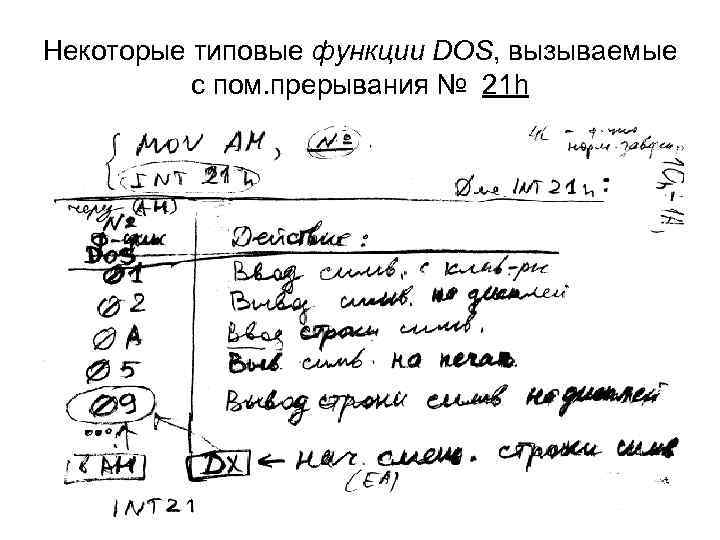 Некоторые типовые функции DOS, вызываемые
с пом.прерывания № 21h
{ MOV AH, №
INT 21h
4C -
норм. заверш.
Для INT 21h:
через (AH)
№
ф-ции
DOS
Действие:
01 Ввод симв. с клав-ры
02 Вывод симв. на дисплей
0A Ввод строки симв.
05 Выв симв. на печат.
09 Вывод строки симв на дисплей
....
в AH DX ← нач. смещ. строки симв
(EA)
INT21